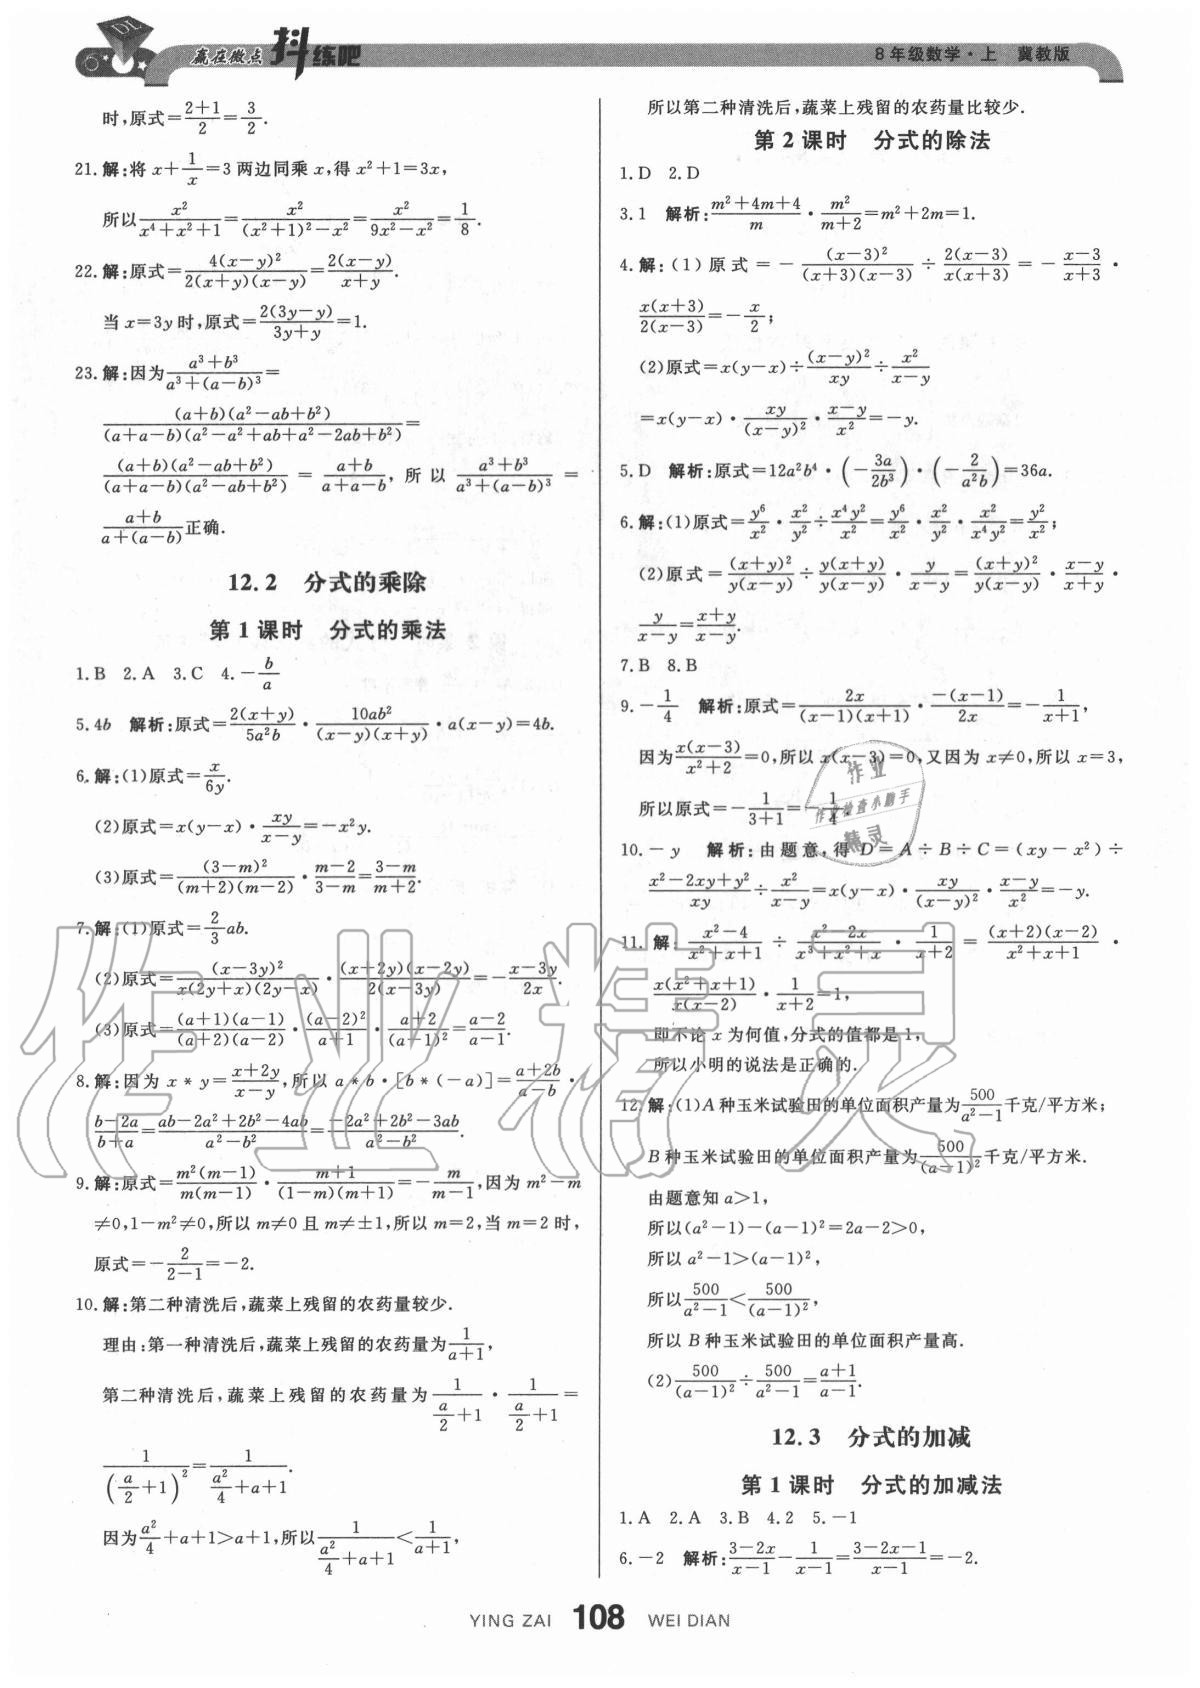 赢在微点 抖练吧
8年级数学·上 冀教版
时,原式=(2+1)/2=3/2.
21.解:将 x+1/x=3 两边同乘 x,得 x²+1=3x,
所以 x²/(x⁴+x²+1)=x²/((x²+1)²-x²)=x²/(9x²-x²)=1/8.
22.解:原式=4(x-y)²/(2(x+y)(x-y))=2(x-y)/(x+y).
当 x=3y 时,原式=2(3y-y)/(3y+y)=1.
23.解:因为 (a³+b³)/(a³+(a-b)³)=
(a+b)(a²-ab+b²)/((a+a-b)(a²-a²+ab+a²-2ab+b²))=
(a+b)(a²-ab+b²)/((a+a-b)(a²-ab+b²))=(a+b)/(a+a-b), 所以 (a³+b³)/(a³+(a-b)³)=
(a+b)/(a+(a-b)) 正确.
12.2 分式的乘除
第1课时 分式的乘法
1.B 2.A 3.C 4.-b/a
5.4b 解析:原式=2(x+y)/(5a²b)·10ab²/((x-y)(x+y))·a(x-y)=4b.
6.解:(1)原式=x/(6y).
(2)原式=x(y-x)·xy/(x-y)=-x²y.
(3)原式=(3-m)²/((m+2)(m-2))·(m-2)/(3-m)=(3-m)/(m+2).
7.解:(1)原式=2/3 ab.
(2)原式=(x-3y)²/(x(2y+x)(2y-x))·(x+2y)(x-2y)/(2(x-3y))=-(x-3y)/(2x).
(3)原式=(a+1)(a-1)/((a+2)(a-2))·(a-2)²/(a+1)·(a+2)/(a-1)²=(a-2)/(a-1).
8.解:因为 x*y=(x+2y)/(x-y),所以 a*b·[b*(-a)]=(a+2b)/(a-b)·
(b-2a)/(b+a)=(ab-2a²+2b²-4ab)/(a²-b²)=(-2a²+2b²-3ab)/(a²-b²).
9.解:原式=m²(m-1)/(m(m-1))·(m+1)/((1-m)(m+1))=-m/(m-1),因为 m²-m
≠0,1-m²≠0,所以 m≠0 且 m≠±1,所以 m=2,当 m=2 时,
原式=-2/(2-1)=-2.
10.解:第二种清洗后,蔬菜上残留的农药量较少.
理由:第一种清洗后,蔬菜上残留的农药量为 1/(a+1),
第二种清洗后,蔬菜上残留的农药量为 1/(a/2+1)·1/(a/2+1)=
1/(a/2+1)²=1/(a²/4+a+1).
因为 a²/4+a+1>a+1,所以 1/(a²/4+a+1)<1/(a+1),
所以第二种清洗后,蔬菜上残留的农药量比较少.
第2课时 分式的除法
1.D 2.D
3.1 解析:(m²+4m+4)/m·m²/(m+2)=m²+2m=1.
4.解:(1)原式=-(x-3)²/((x+3)(x-3))÷2(x-3)/(x(x+3))=-(x-3)/(x+3)·
x(x+3)/(2(x-3))=-x/2;
(2)原式=x(y-x)÷(x-y)²/(xy)÷x²/(x-y)
=x(y-x)·xy/(x-y)²·(x-y)/x²=-y.
5.D 解析:原式=12a²b⁴·(-3a/(2b³))·(-2/(a²b))=36a.
6.解:(1)原式=y⁶/x²·x²/y²÷x⁴y²/x²=y⁶/x²·x²/y²·x²/(x⁴y²)=y²/x²;
(2)原式=(x+y)²/(y(x-y))÷y(x+y)/(y(x-y))·y/(x-y)=(x+y)²/(y(x-y))·(x-y)/(x+y)·
y/(x-y)=(x+y)/(x-y).
7.B 8.B
9.-1/4 解析:原式=2x/((x-1)(x+1))·-(x-1)/(2x)=-1/(x+1),
因为 x(x-3)/(x²+2)=0,所以 x(x-3)=0,又因为 x≠0,所以 x=3,
所以原式=-1/(3+1)=-1/4.
10.-y 解析:由题意,得 D=A÷B÷C=(xy-x²)÷
(x²-2xy+y²)/(xy)÷x²/(x-y)=x(y-x)·xy/(x-y)²·(x-y)/x²=-y.
11.解:(x²-4)/(x²+x+1)÷(x²-2x)/(x³+x²+x)·1/(x+2)=(x+2)(x-2)/(x²+x+1)·
x(x²+x+1)/(x(x-2))·1/(x+2)=1,
即不论 x 为何值,分式的值都是1,
所以小明的说法是正确的.
12.解:(1)A 种玉米试验田的单位面积产量为 500/(a²-1) 千克/平方米;
B 种玉米试验田的单位面积产量为 500/(a-1)² 千克/平方米.
由题意知 a>1,
所以(a²-1)-(a-1)²=2a-2>0,
所以 a²-1>(a-1)²,
所以 500/(a²-1)<500/(a-1)²,
所以 B 种玉米试验田的单位面积产量高.
(2)500/(a-1)²÷500/(a²-1)=(a+1)/(a-1).
12.3 分式的加减
第1课时 分式的加减法
1.A 2.A 3.B 4.2 5.-1
6.-2 解析:(3-2x)/(x-1)-1/(x-1)=(3-2x-1)/(x-1)=-2.
YING ZAI 108 WEI DIAN
作业精灵
作业
作业检查小助手
精灵